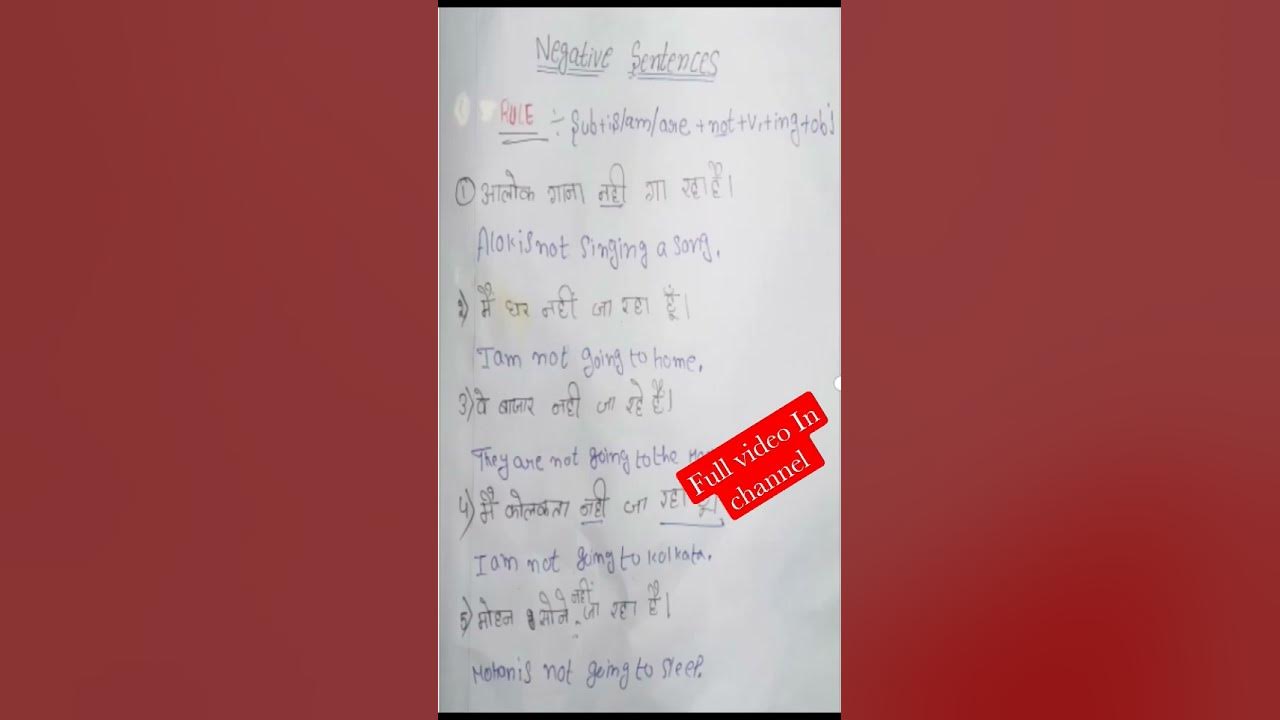 Negative Sentences
RULE ÷ Sub+is/am/are +not+V₁+ing+ob's
① आलोक गाना नही गा रहा है।
Alok is not Singing a Song.
2) मैं घर नहीं जा रहा हूँ।
I am not going to home.
3) वे बाजार नही जा रहे हैं।
They are not going to the
Full video In
channel
4) मैं कोलकता नही जा रहा
I am not going to Kolkata.
5) मोहन सोने नहीं जा रहा है।
Mohan is not going to Sleep.